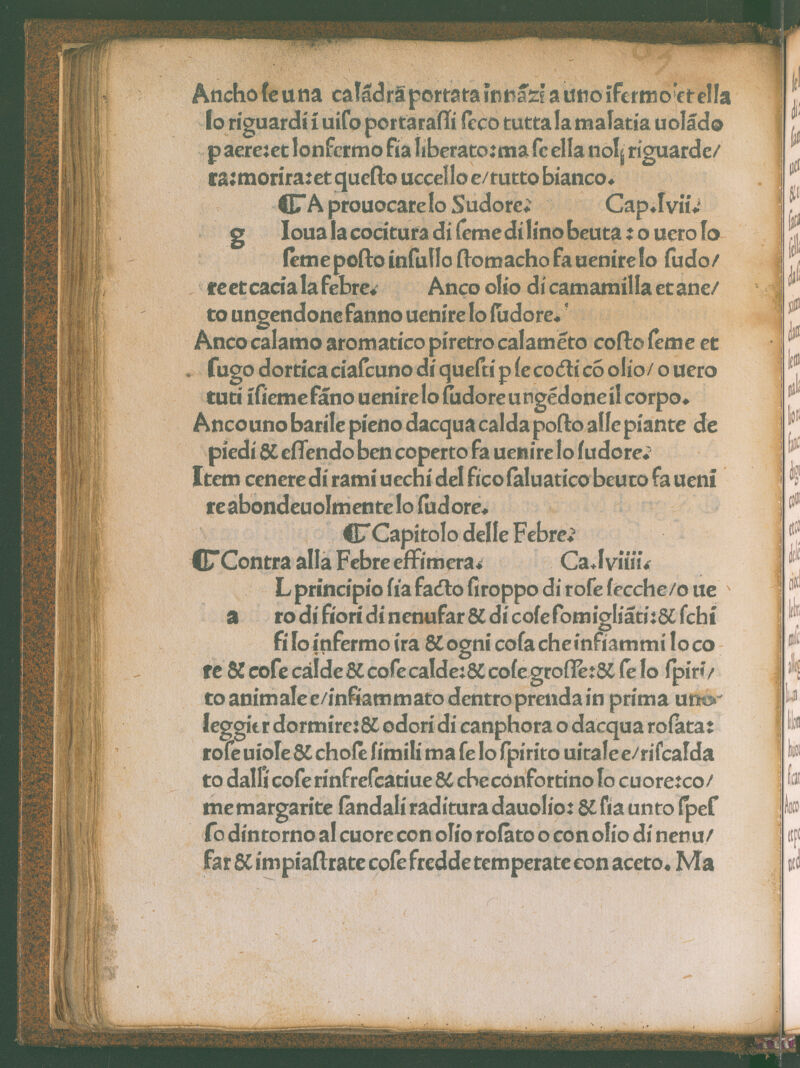 Ancho ſe una calādrā portata innāzi a uno īfermo et ella
lo riguardi ī uiſo portaraſſi ſeco tutta la malatia uolādo
p aere: et lonfermo fia liberato: ma ſe ella nol riguarde/
ra: morira: et queſto uccello e/ tutto bianco.
¶ A prouocare lo Sudore. Cap. lvii.
g Ioua la cocitura di ſeme di lino beuta: o uero lo
ſeme poſto inſullo ſtomacho fa uenire lo ſudo/
re et cacia la febre. Anco olio di camamilla et ane/
to ungendone fanno uenire lo ſudore.
Anco calamo aromatico piretro calamēto coſto ſeme et
ſugo dortica ciaſcuno di queſti p ſe cocti cō olio/ o uero
tuti īſieme fāno uenire lo ſudore ungēdone il corpo.
Anco uno barile pieno dacqua calda poſto alle piante de
piedi & eſſendo ben coperto fa uenire lo ſudore.
Item cenere di rami uechi del fico ſaluatico beuto fa ueni
re abondeuolmente lo ſudore.
¶ Capitolo delle Febre.
¶ Contra alla Febre effimera. Ca. lviiii.
L principio ſia facto ſiroppo di roſe ſecche/ o ue
a ro di fiori di nenufar & di coſe ſomigliāti: & ſchi
fi lo infermo ira & ogni coſa che infiammi lo co
re & coſe calde & coſe calde: & coſe groſſe: & ſe lo ſpiri/
to animale e/ infiammato dentro prenda in prima uno
leggier dormire: & odori di canphora o dacqua roſata:
roſe uiole & choſe ſimili ma ſe lo ſpirito uitale e/ riſcalda
to dalli coſe rinfreſcatiue & che confortino lo cuore: co/
me margarite ſandali raditura dauolio: & ſia unto ſpeſ
ſo dintorno al cuore con olio roſato o con olio di nenu/
far & impiaſtrate coſe fredde temperate con aceto. Ma